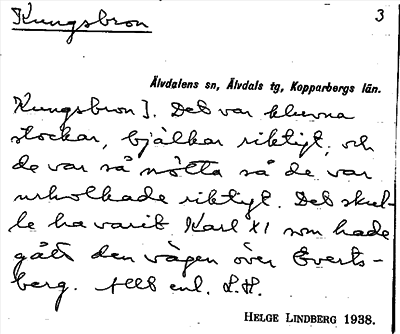 Kungsbron
3
Älvdalens sn, Älvdals tg, Kopparbergs län.
Kungsbron]. Det var kluvna
stockar, bjälkar riktigt, och
de var så nötta så de var
urholkade riktigt. Det skul-
le ha varit Karl XI som hade
gått den vägen över Everts-
berg. enl. L.H.
HELGE LINDBERG 1938.